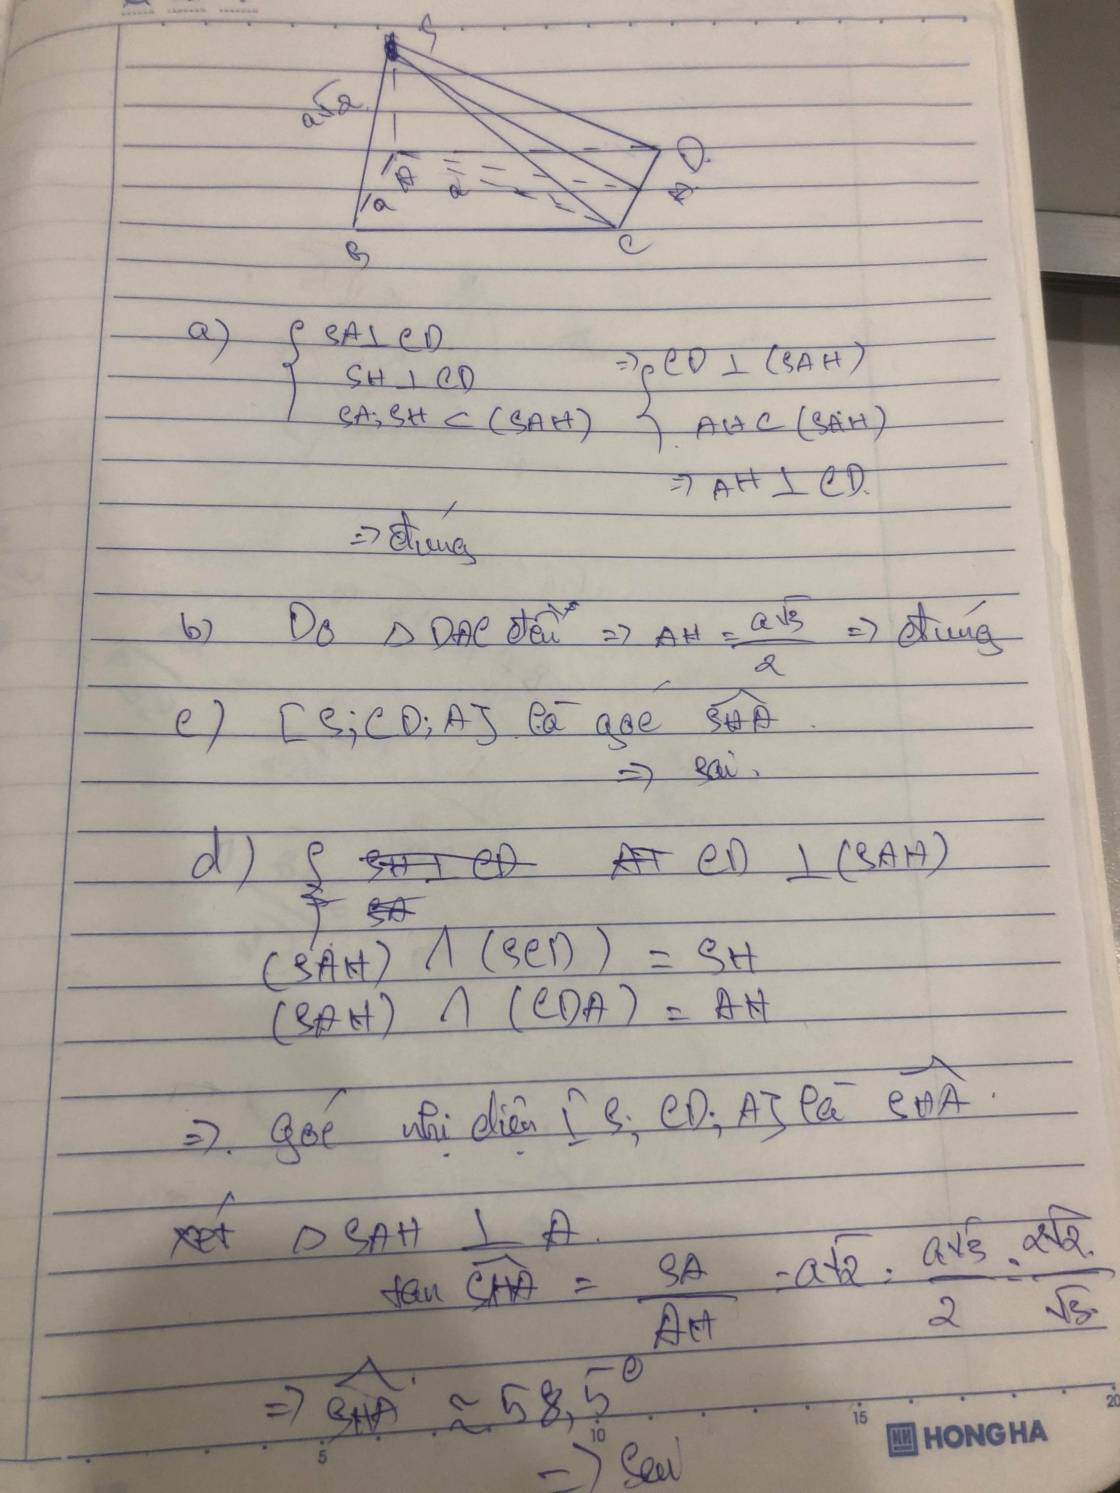 S
a√2
A
D
a
a
H
B
C
a) { SA ⊥ CD
SH ⊥ CD => { CD ⊥ (SAH)
SA; SH ⊂ (SAH) AH ⊂ (SAH)
=> AH ⊥ CD.
=> đúng
b) Do Δ DAC đều => AH = a√3/2 => đúng
c) [S; CD; A] là góc SHA.
=> sai.
d) { SH ⊥ CD AH CD ⊥ (SAH)
SA
(SAH) ∩ (SCD) = SH
(SAH) ∩ (CDA) = AH
=> góc nhị diện [S; CD; A] là SHA.
xét Δ SAH ⊥ A.
tan SHA = SA/AH = a√2 : a√3/2 = 2√2/√3.
=> SHA ≈ 58,5°
=> sai
5 10 15 20
HH HONG HA